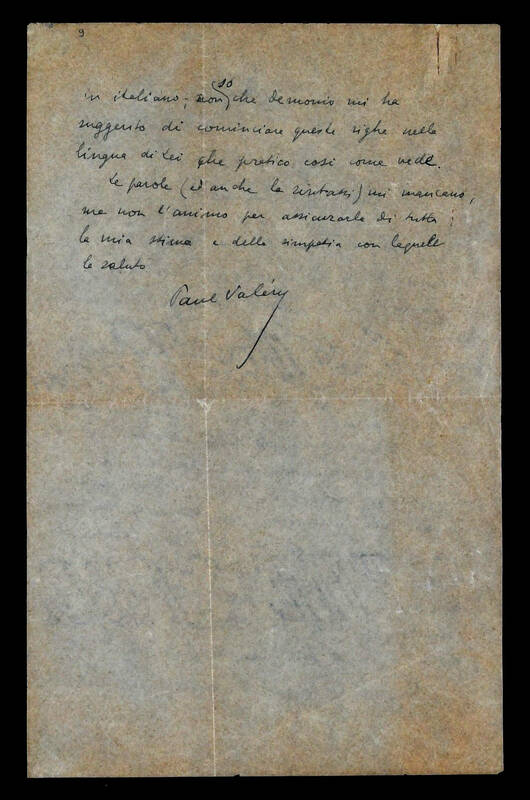 9
in italiano; non so che demonio mi ha
suggerito di cominciare queste righe nella
lingua di Lei che pratico così come vede.
Le parole (ed anche la sintassi) mi mancano,
ma non l'animo per assicurarla di tutta
la mia stima e della simpatia con laquale
la saluto
Paul Valéry